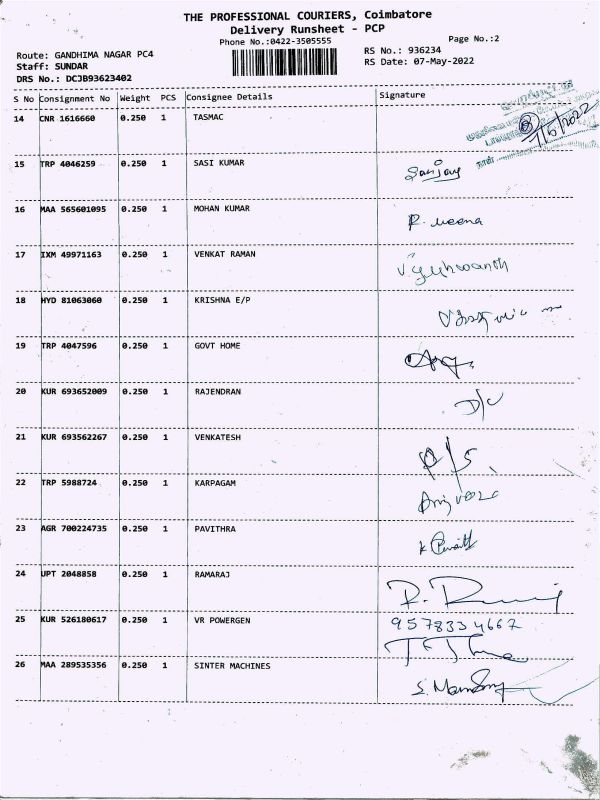 THE PROFESSIONAL COURIERS, Coimbatore
Delivery Runsheet - PCP
Phone No.:0422-3505555
Page No.:2
Route: GANDHIMA NAGAR PC4
RS No.: 936234
Staff: SUNDAR
RS Date: 07-May-2022
DRS No.: DCJB93623402
S No Consignment No Weight PCS Consignee Details Signature
14 CNR 1616660 0.250 1 TASMAC
7/5/2022
15 TRP 4046259 0.250 1 SASI KUMAR Sanjay
16 MAA 565601095 0.250 1 MOHAN KUMAR R. Meena
17 IXM 49971163 0.250 1 VENKAT RAMAN
18 HYD 81063060 0.250 1 KRISHNA E/P
19 TRP 4047596 0.250 1 GOVT HOME
20 KUR 693652009 0.250 1 RAJENDRAN D/C
21 KUR 693562267 0.250 1 VENKATESH
22 TRP 5988724 0.250 1 KARPAGAM
23 AGR 700224735 0.250 1 PAVITHRA
24 UPT 2048858 0.250 1 RAMARAJ
25 KUR 526180617 0.250 1 VR POWERGEN 9578334667
26 MAA 289535356 0.250 1 SINTER MACHINES